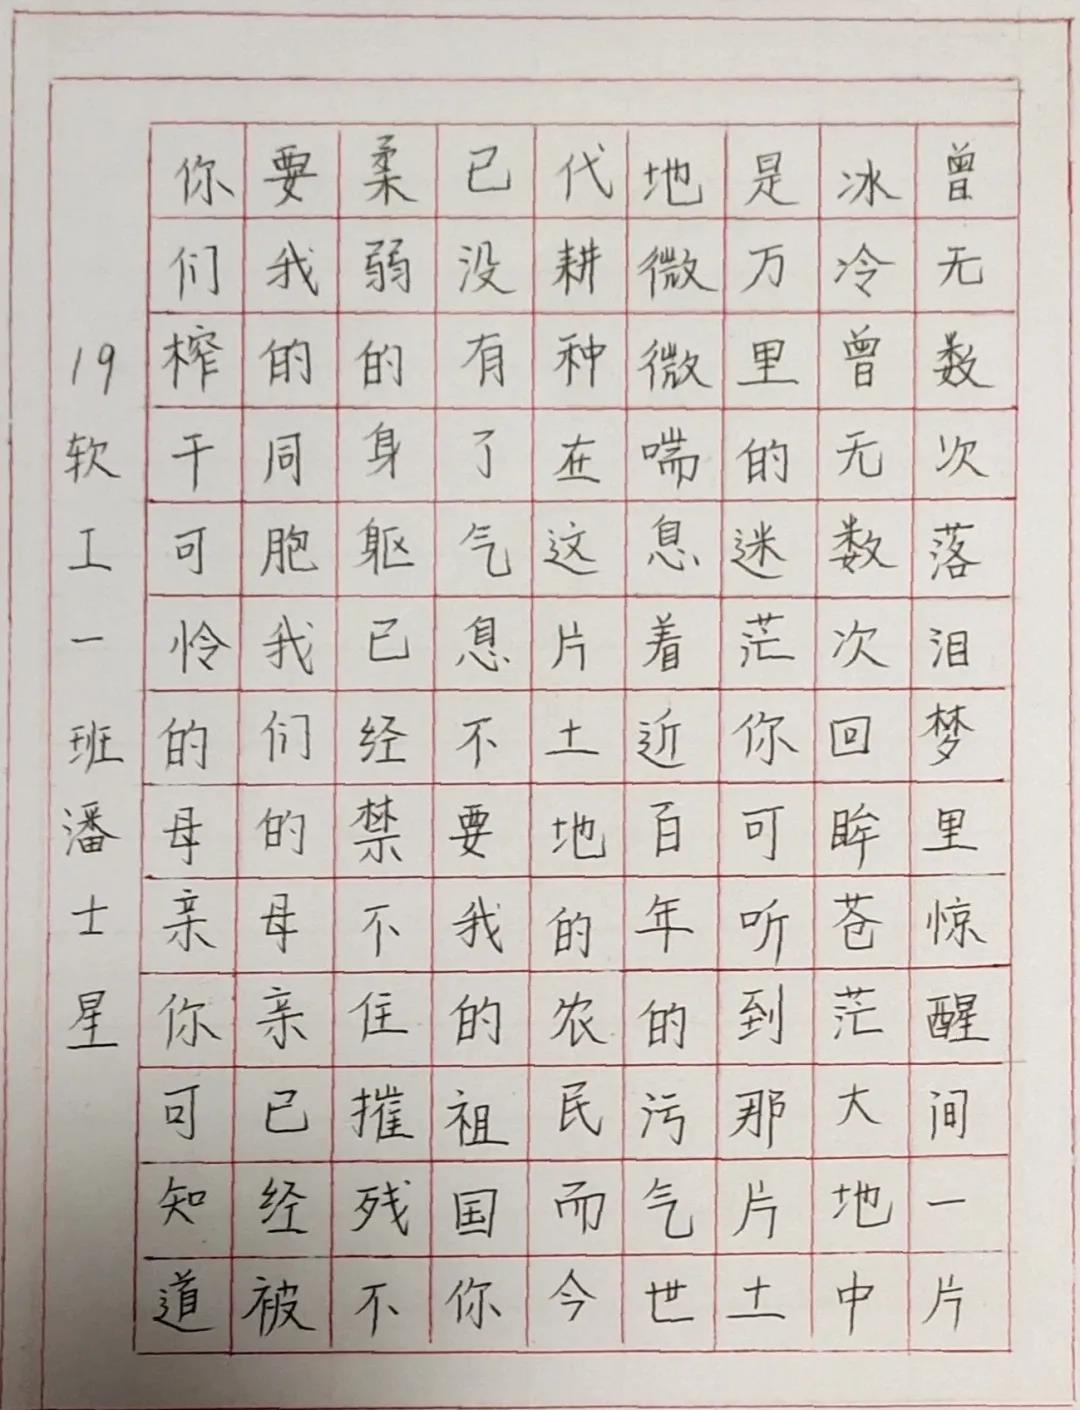 曾无数次落泪梦里惊醒间一片
冰冷曾无数次回眸苍茫大地中
是万里的迷茫你可听到那片土
地微微喘息着近百年的污气世
代耕种在这片土地的农民而今
已没有了气息不要我的祖国你
柔弱的身躯已经禁不住摧残不
要我的同胞我们的母亲已经被
你们榨干可怜的母亲你可知道
19软工一班潘士星